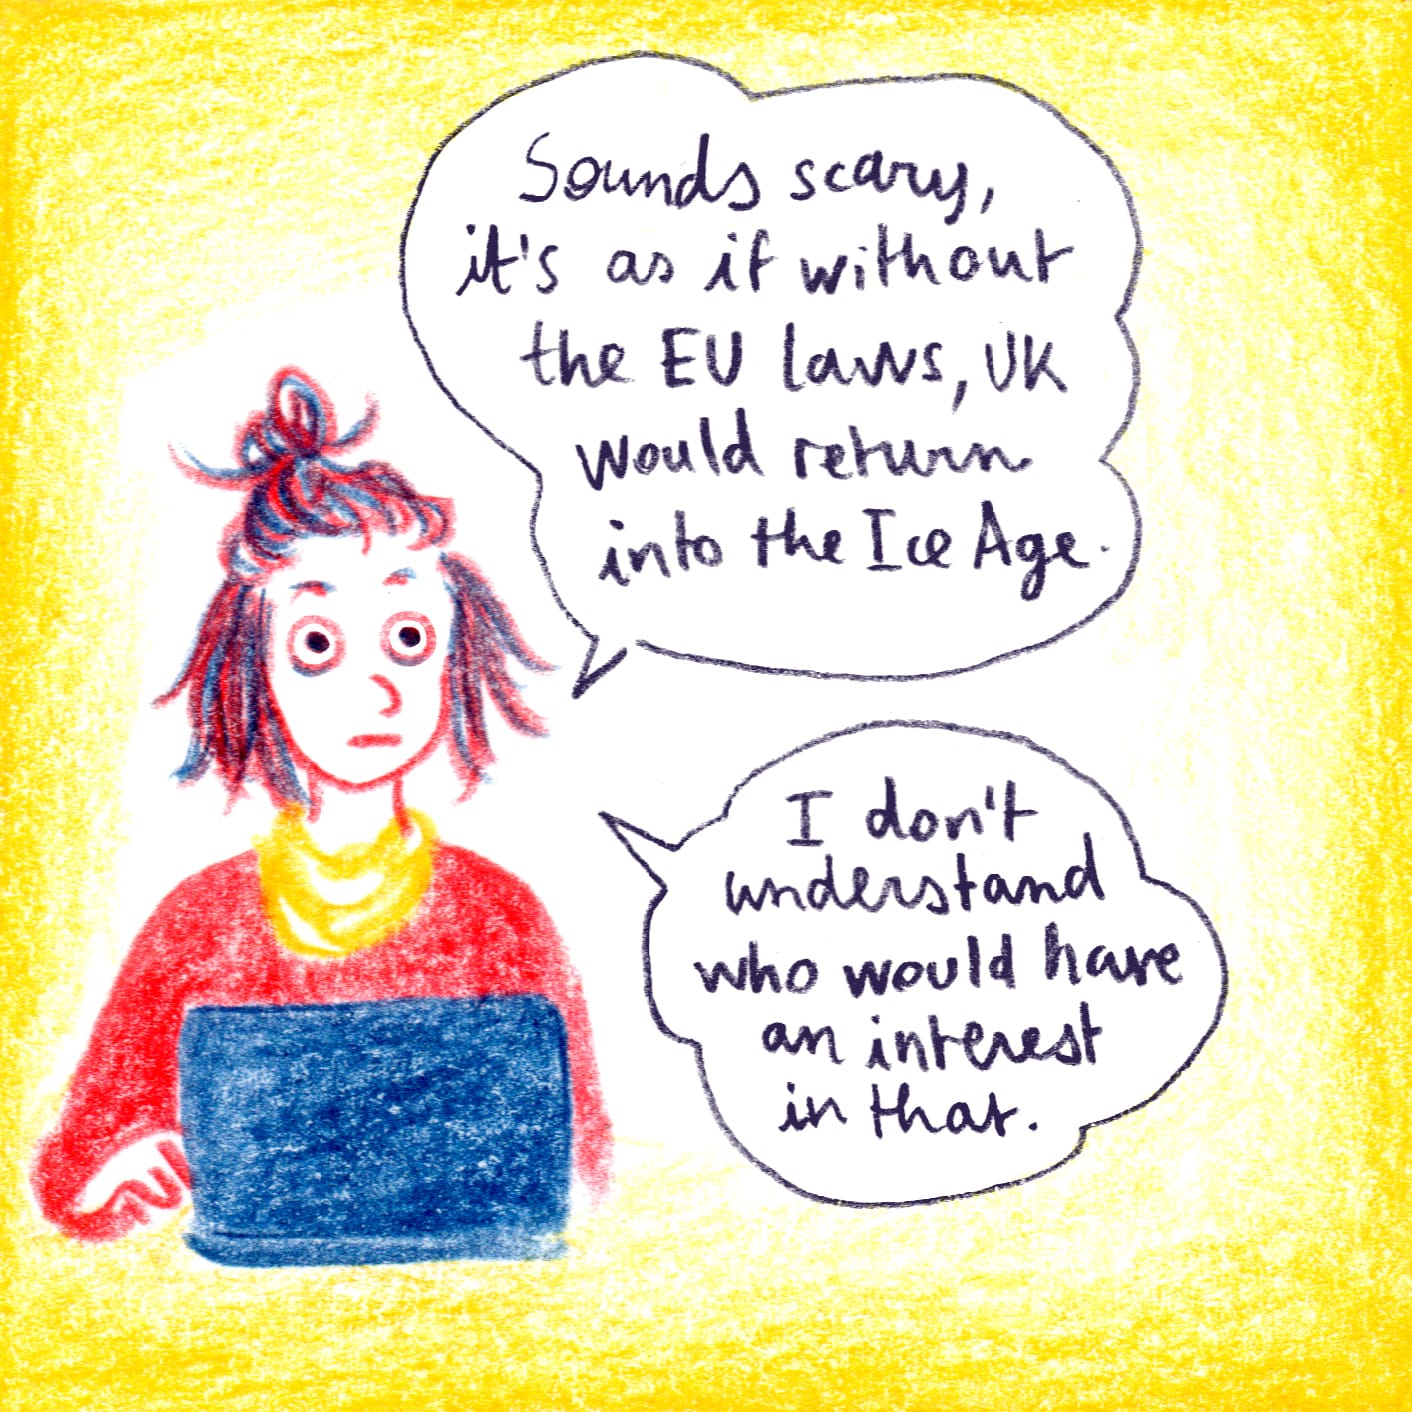 Sounds scary,
it's as if without
the EU laws, UK
would return
into the Ice Age.
I don't
understand
who would have
an interest
in that.